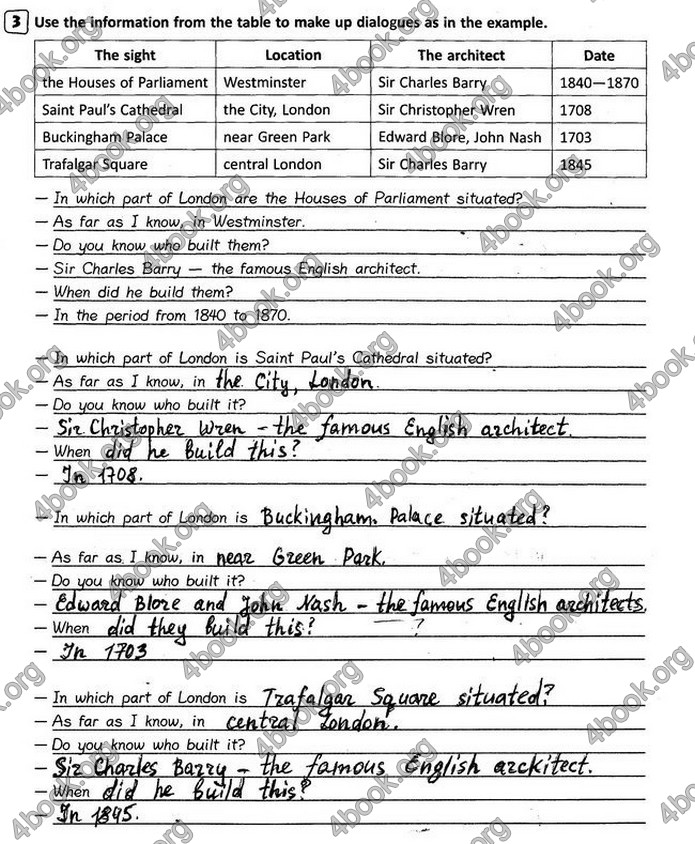 3 Use the information from the table to make up dialogues as in the example.
The sight Location The architect Date
the Houses of Parliament Westminster Sir Charles Barry 1840—1870
Saint Paul's Cathedral the City, London Sir Christopher Wren 1708
Buckingham Palace near Green Park Edward Blore, John Nash 1703
Trafalgar Square central London Sir Charles Barry 1845
– In which part of London are the Houses of Parliament situated?
– As far as I know, in Westminster.
– Do you know who built them?
– Sir Charles Barry – the famous English architect.
– When did he build them?
– In the period from 1840 to 1870.
– In which part of London is Saint Paul's Cathedral situated?
– As far as I know, in the City, London.
– Do you know who built it?
– Sir Christopher Wren – the famous English architect.
– When did he build this?
– In 1708.
– In which part of London is Buckingham Palace situated?
– As far as I know, in near Green Park.
– Do you know who built it?
– Edward Blore and John Nash – the famous English architects.
– When did they build this? ?
– In 1703
– In which part of London is Trafalgar Square situated?
– As far as I know, in central London.
– Do you know who built it?
– Sir Charles Barry – the famous English arckitect.
– When did he build this?
– In 1845.
4book.org